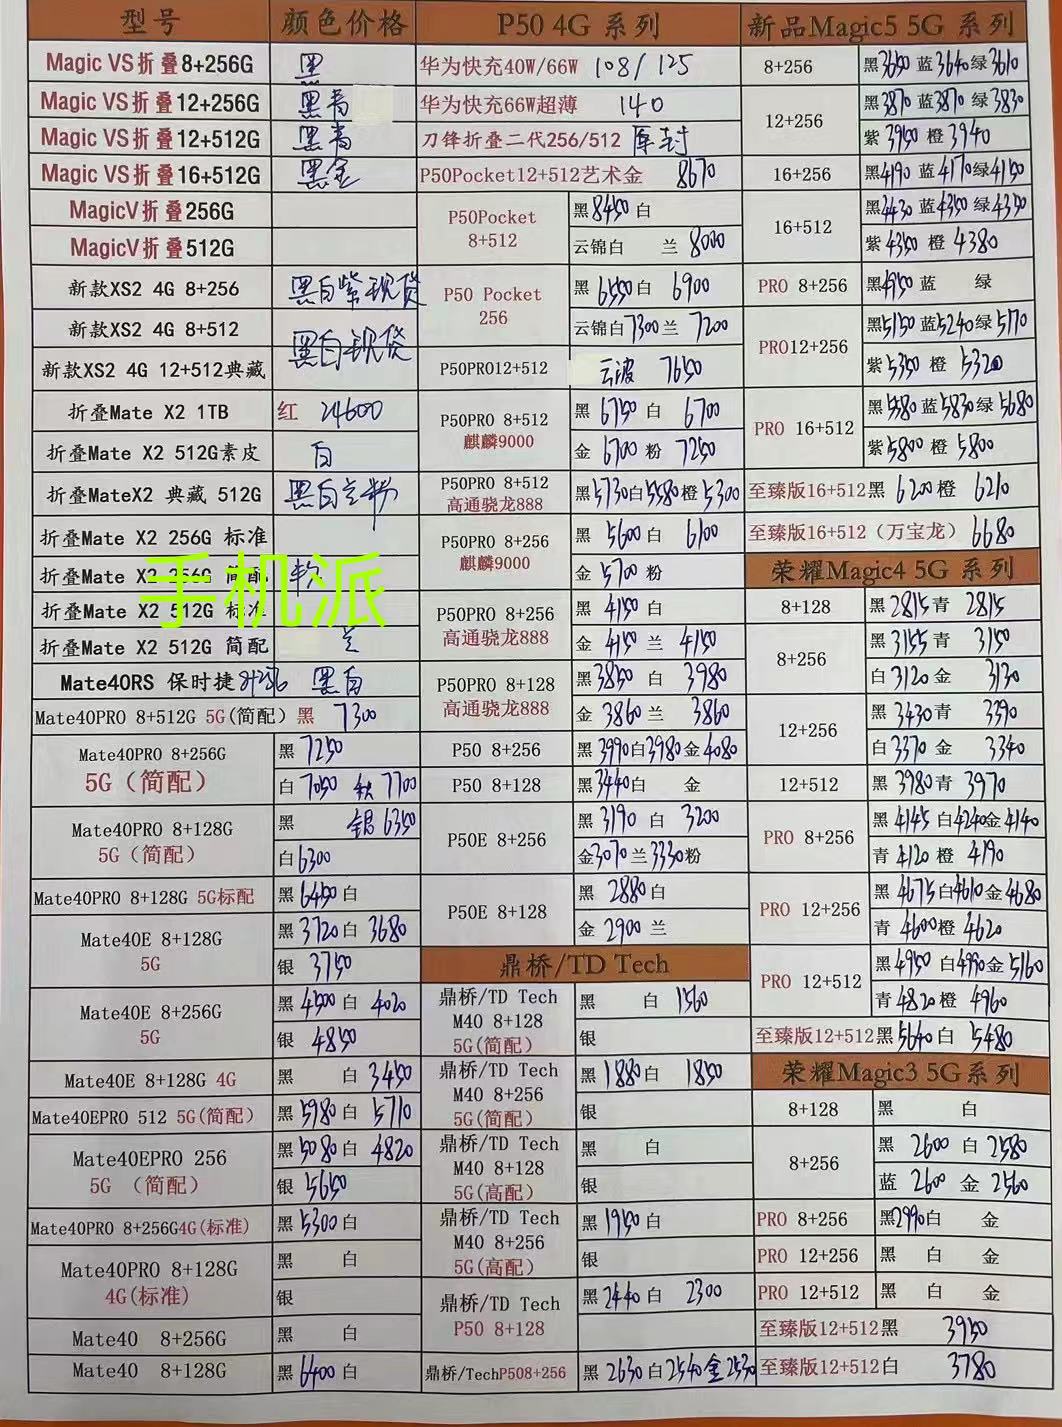 型号 颜色价格
Magic VS折叠8+256G 黑
Magic VS折叠12+256G 黑青
Magic VS折叠12+512G 黑青
Magic VS折叠16+512G 黑金
MagicV折叠256G
MagicV折叠512G
新款XS2 4G 8+256 黑白紫现货
新款XS2 4G 8+512 黑白现货
新款XS2 4G 12+512典藏
折叠Mate X2 1TB 红 24600
折叠Mate X2 512G素皮 白
折叠MateX2 典藏 512G 黑白兰粉
折叠Mate X2 256G 标准
折叠Mate X2 256G 简配
手机派
折叠Mate X2 512G 标准
折叠Mate X2 512G 简配 兰
Mate40RS 保时捷 8+256 黑白
Mate40PRO 8+512G 5G(简配) 黑 7300
Mate40PRO 8+256G 黑 7250
5G(简配) 白7050 秋 7700
Mate40PRO 8+128G 黑 银 6350
5G(简配) 白6300
Mate40PRO 8+128G 5G标配 黑6450白
Mate40E 8+128G 黑3720白 3680
5G 银 3750
Mate40E 8+256G 黑4500白 4020
5G 银 4850
Mate40E 8+128G 4G 黑 白3450
Mate40EPRO 512 5G(简配) 黑5980白 5710
Mate40EPRO 256 黑5080白 4820
5G (简配) 银 5650
Mate40PRO 8+256G4G(标准) 黑5300白
Mate40PRO 8+128G 黑 白
4G(标准) 银
Mate40 8+256G 黑 白
Mate40 8+128G 黑6400白
P50 4G 系列
华为快充40W/66W 108/125
华为快充66W超薄 140
刀锋折叠二代256/512 原封
P50Pocket12+512艺术金 8670
P50Pocket 黑8450白
8+512 云锦白 兰 8000
P50 Pocket 黑6550白 6900
256 云锦白7300兰 7200
P50PRO12+512 云波 7650
P50PRO 8+512 黑 6750白 6700
麒麟9000 金 6700粉 7250
P50PRO 8+512
高通骁龙888 黑5730白5580橙5300
P50PRO 8+256 黑 5600白 6100
麒麟9000 金 5700粉
P50PRO 8+256 黑 4150白
高通骁龙888 金 4150兰 4150
P50PRO 8+128 黑3850 白 3980
高通骁龙888 金 3860兰 3860
P50 8+256 黑3990白3980金4080
P50 8+128 黑3440白 金
P50E 8+256 黑 3190 白 3200
金3070兰3330粉
P50E 8+128 黑 2880白
金 2900兰
鼎桥/TD Tech
鼎桥/TD Tech 黑 白 1560
M40 8+128
5G(简配) 银
鼎桥/TD Tech 黑1880白 1850
M40 8+256
5G(简配) 银
鼎桥/TD Tech 黑 白
M40 8+128
5G(高配) 银
鼎桥/TD Tech 黑1950白
M40 8+256
5G(高配) 银
鼎桥/TD Tech 黑2440白 2300
P50 8+128
鼎桥/TechP508+256 黑 2630白2540金2530
新品Magic5 5G 系列
8+256 黑3650蓝3640绿3610
12+256 黑3870蓝3870绿3830
紫3900橙3940
16+256 黑4190蓝4170绿4150
16+512 黑4430蓝4350绿4350
紫4350橙4380
PRO 8+256 黑4950蓝 绿
PRO12+256 黑5150蓝5240绿5170
紫5350橙 5320
PRO 16+512 黑5580蓝5830绿5680
紫5800橙 5800
至臻版16+512黑 6200橙 6210
至臻版16+512(万宝龙) 6680
荣耀Magic4 5G 系列
8+128 黑2815青 2815
8+256 黑3155青 3150
白3120金 3130
12+256 黑 3430青 3390
白3370金 3340
12+512 黑 3980青 3970
PRO 8+256 黑4145白4240金4140
青 4120橙 4190
PRO 12+256 黑4675白4610金4680
青 4600橙 4620
PRO 12+512 黑4950白4990金5160
青4820橙 4960
至臻版12+512黑5640白 5480
荣耀Magic3 5G系列
8+128 黑 白
8+256 黑 2600白2580
蓝 2600 金2560
PRO 8+256 黑2990白 金
PRO 12+256 黑 白 金
PRO 12+512 黑 白 金
至臻版12+512黑 3950
至臻版12+512白 3780